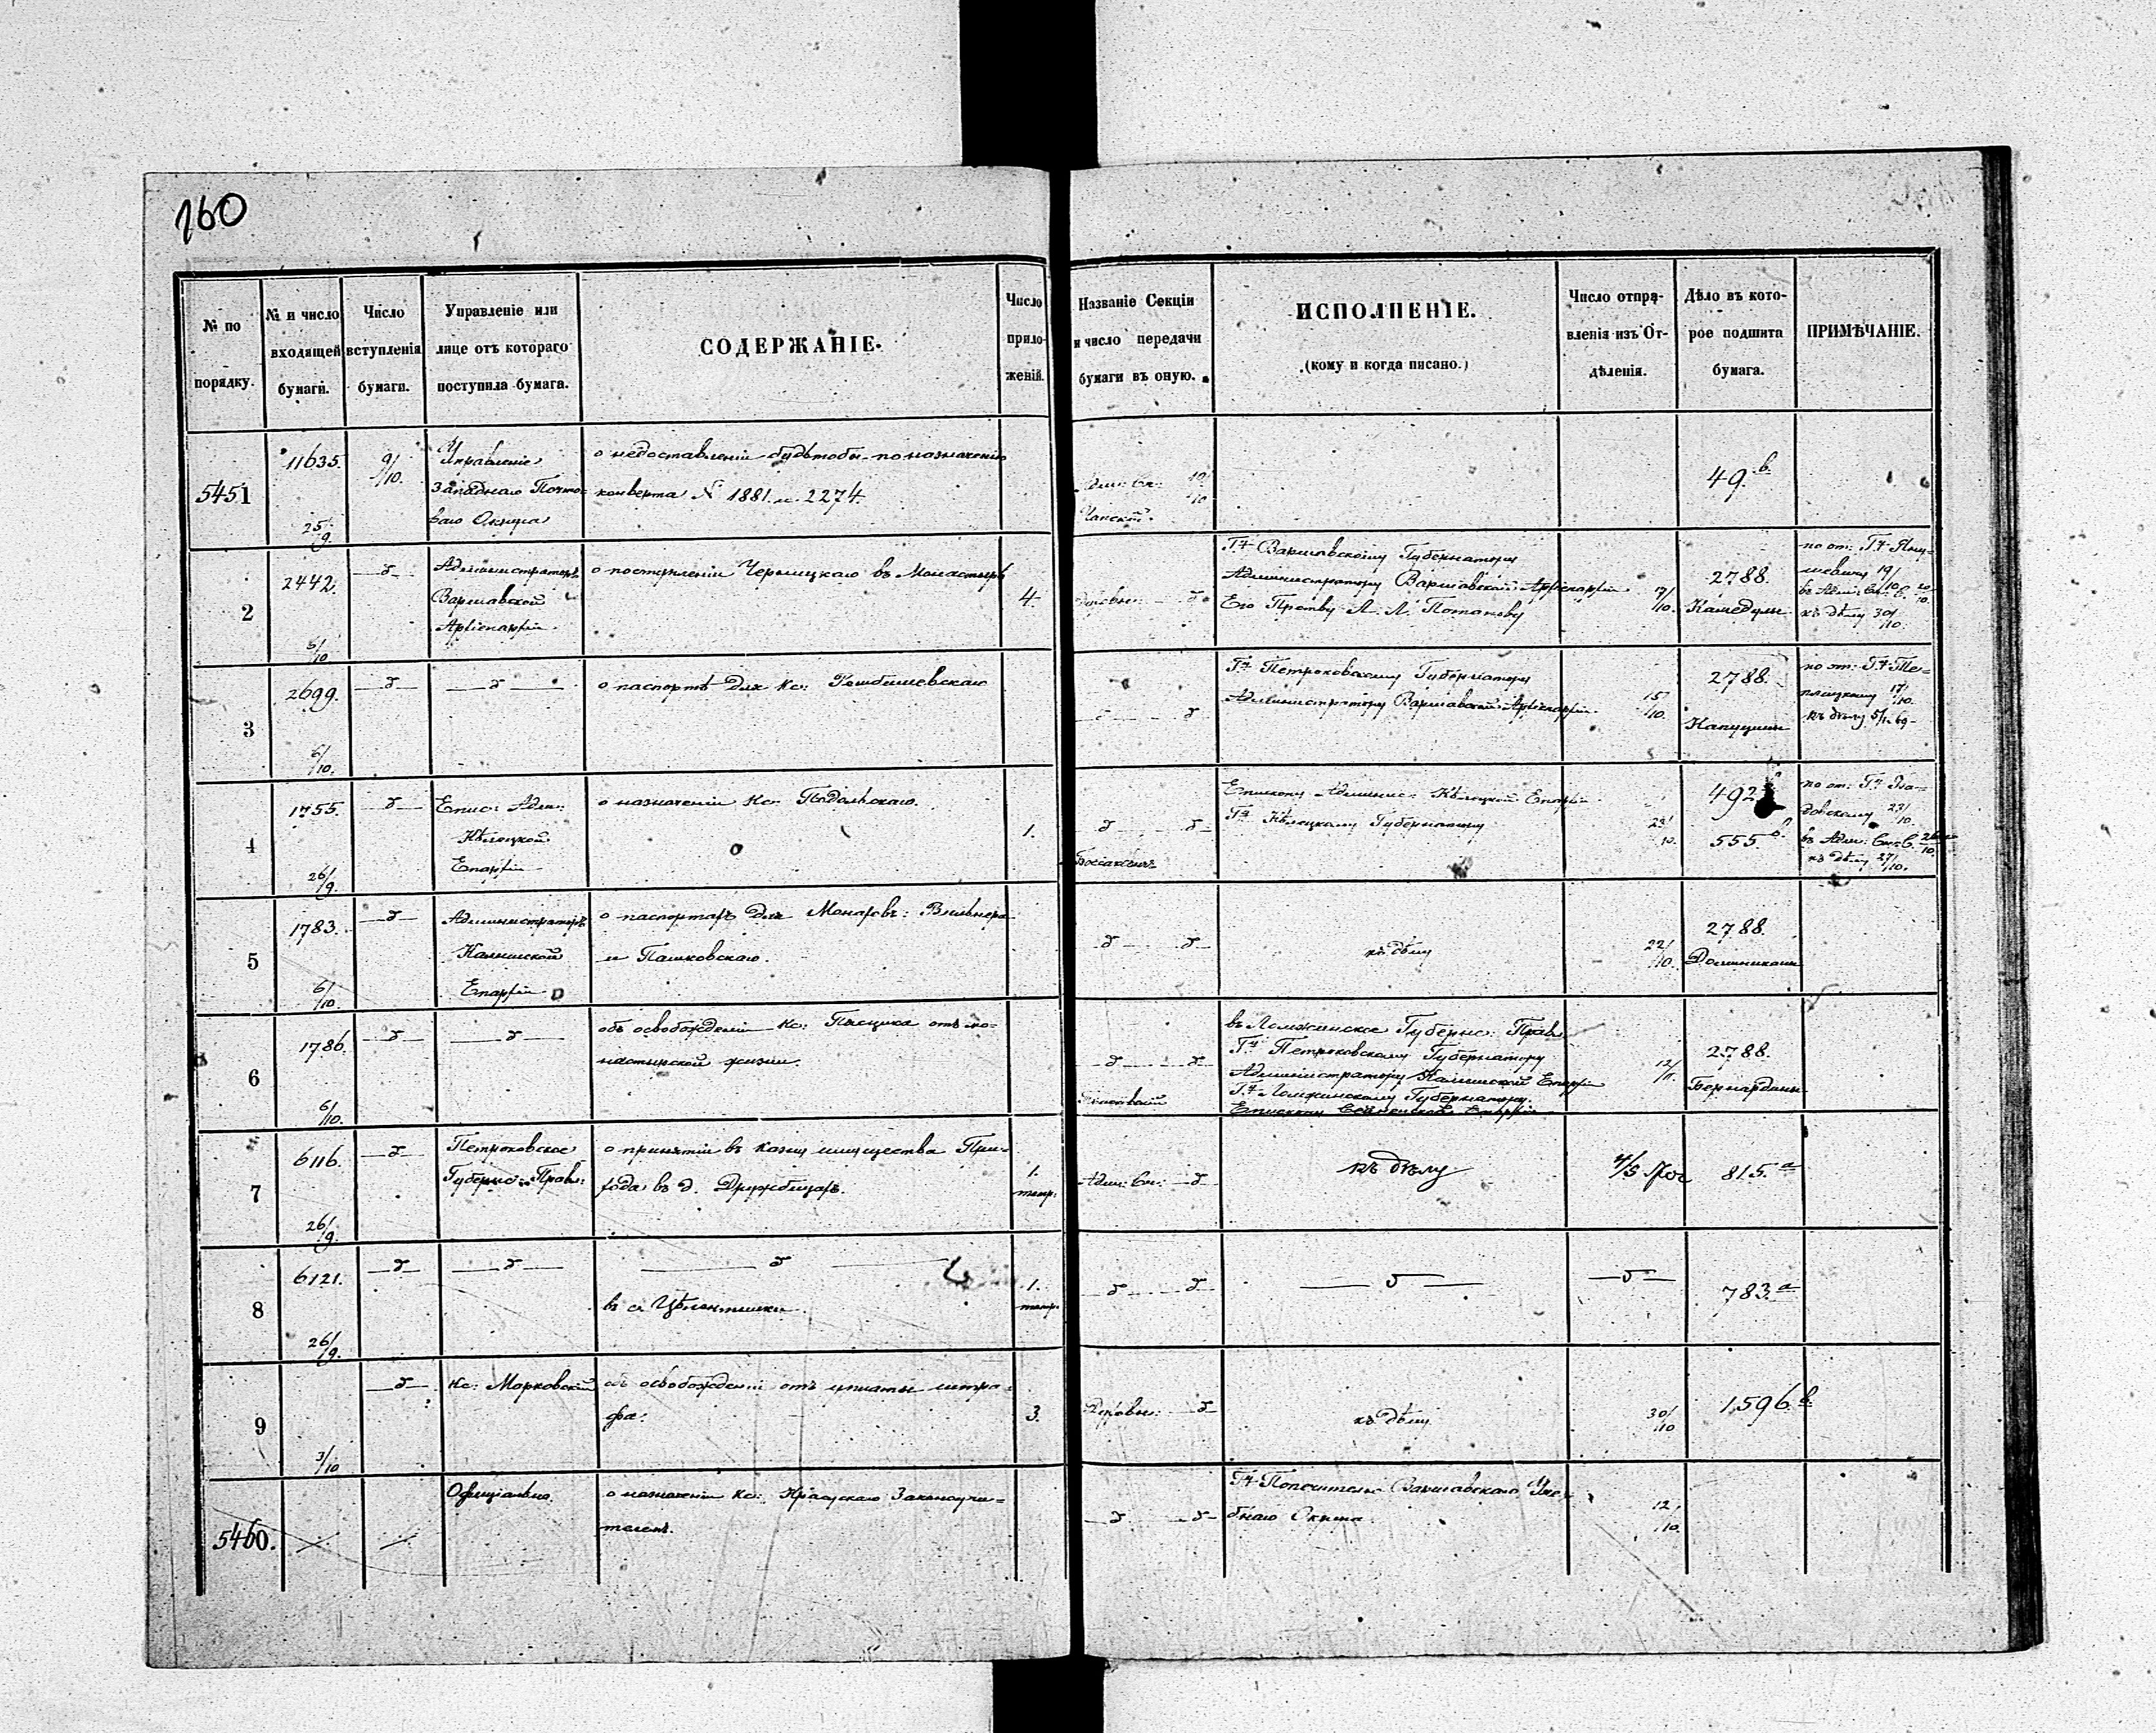 160
№ по порядку.
№ и число входящей бумаги.
Число вступленія бумаги.
Управленіе или лице отъ котораго поступила бумага.
СОДЕРЖАНІЕ.
Число приложеній.
Названіе Секціи и число передачи бумаги въ оную.
ИСПОЛНЕНІЕ.
(кому и когда писано.)
Число отправленія изъ Отдѣленія.
Дѣло въ которое подшита бумага.
ПРИМѢЧАНІЕ.
5451
11635.
25/9.
9/10.
Управленіе
Западнаго Почто-
ваго Округа
о недоставленіи будьтобы по назначенію
конверта № 1881. и 2274.
Адм: Ск: 10/10
49.в.
2
2442.
5/10
—д—
Администраторъ
Варшавской
Архіепархіи.
о поступленіи Чермицкаго въ Монастырь
4.
Духовн: д
Г. Варшавскому Губернатору
Администратору Варшавской Архіепархіи
Его Прству А. Л. Потапову
17/10.
2788.
Камедулы
къ дѣлу 30/10.
3
2699.
6/10.
—д—
—д—
о паспортѣ для Кс:
—д— д
Г. Петроковскому Губернатору
Администратору Варшавской Архіепархіи.
15/10.
2788.
Капуцины
къ дѣлу 5/1 69
4
1755.
26/9.
—д—
Епис: Адм:
Кѣлецкой
Епархіи
о назначеніи Кс: Подольскаго.
1.
—д— д
Епископу Админис: Кѣлецкой Епархіи
Г. Кѣлецкому Губернатору
23/10.
492
555.
къ дѣлу 27/10.
5
1783.
6/10.
—д—
Администраторъ
Калишской
Епархіи
о паспортахъ для Монаховъ: Вильнера
и Пашковскаго.
—д— д
къ дѣлу
22/10.
2788.
Доминикане
6
1786.
6/10.
—д—
—д—
объ освобожденіи Кс: Пысчика отъ мо-
настырской жизни.
—д— д
въ Ломжинское Губернс: Прав
Г. Петроковскому Губернатору
Администратору Калишской Епархіи
Г. Ломжинскому Губернатору.
Епископу Сейненской Епархіи
12/11.
2788.
Бернардины
7
6116.
26/9.
—д—
Петроковское
Губернс: Прав:
о принятіи въ казну имущества При-
хода въ д. Дружбицахъ.
1.
Адм: Ск: —д
къ дѣлу
815.а
8
6121.
26/9.
—д—
—д—
—д—
въ с.
1.
—д— д
—д—
—д—
783.а
9
3/10
—д—
Кс: Морковскій
объ освобожденіи отъ уплаты штра-
фа.
3.
Духовн: д
къ дѣлу
30/10
1596.в.
5460.
Офиціально.
о назначеніи Кс: Законоучи-
телемъ.
—д— д
Г. Попечителю Варшавскаго Уче-
бнаго Округа
12/10.